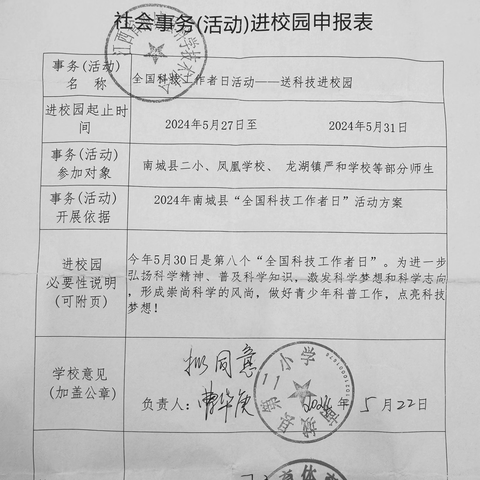 社会事务(活动)进校园申报表
事务(活动)
名　称
全国科技工作者日活动——送科技进校园
进校园起止时
间
2024年5月27日至 2024年5月31日
事务(活动)
参加对象
南城县二小、凤凰学校、龙湖镇严和学校等部分师生
事务(活动)
开展依据
2024年南城县“全国科技工作者日”活动方案
进校园
必要性说明
(可附页)
今年5月30日是第八个“全国科技工作者日”。为进一步
弘扬科学精神、普及科学知识，激发科学梦想和科学志向
，形成崇尚科学的风尚，做好青少年科普工作，点亮科技
梦想!
学校意见
(加盖公章)
拟同意
负责人:
2024年 5月22日